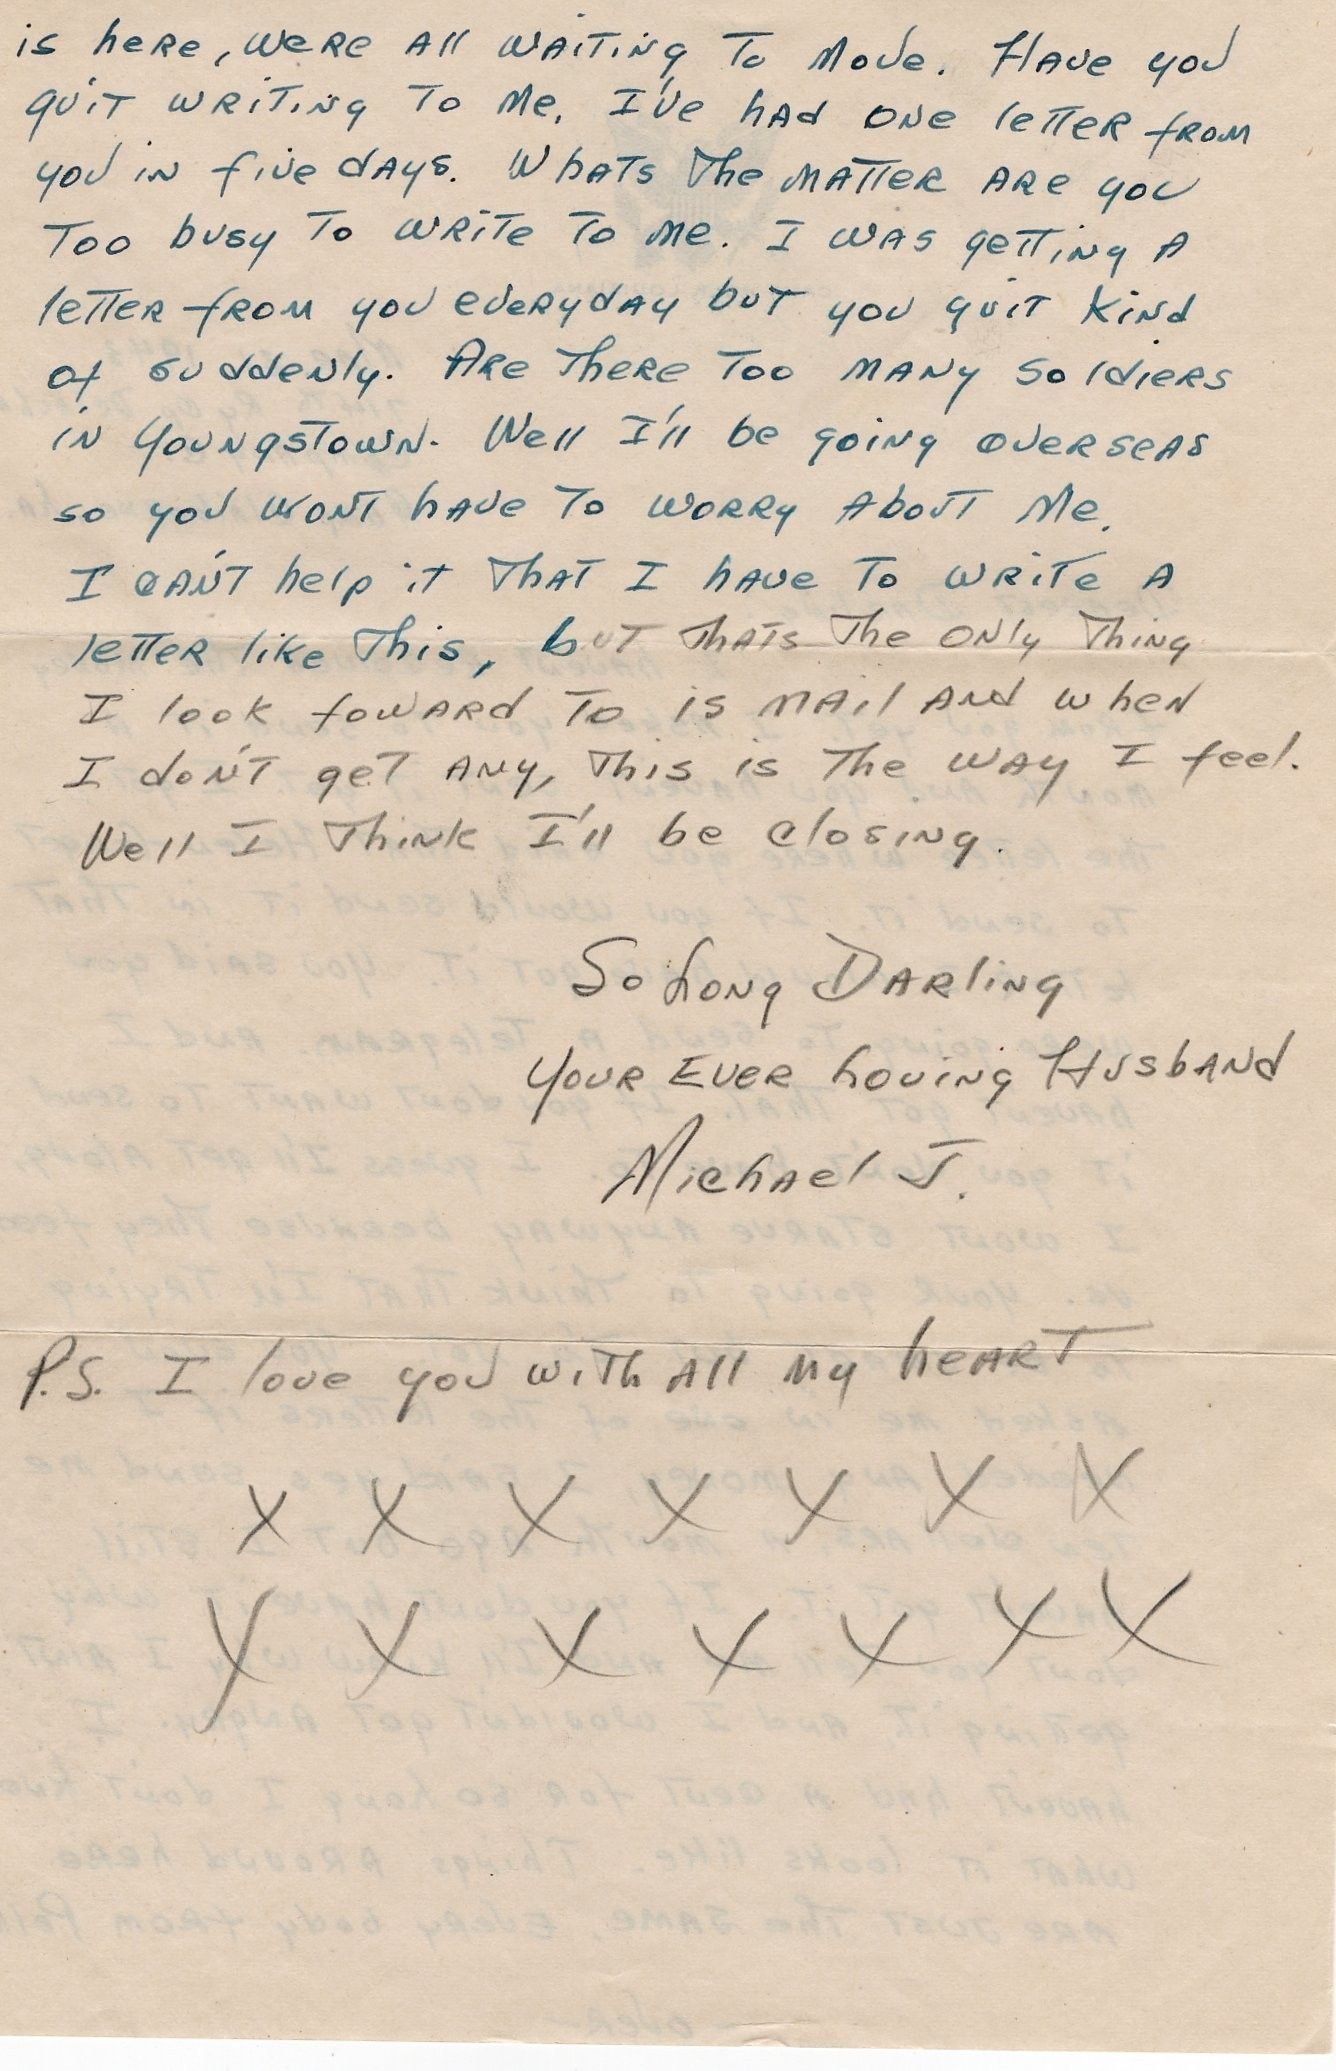 is here, were all waiting to move. Have you
quit writing to me. I've had one letter from
you in five days. Whats the matter are you
too busy to write to me. I was getting a
letter from you everyday but you quit kind
of suddenly. Are there too many soldiers
in Youngstown. Well I'll be going overseas
so you wont have to worry about me.
I can't help it that I have to write a
letter like this, but thats the only thing
I look foward to is mail and when
I don't get any, this is the way I feel.
Well I think I'll be closing.
So Long Darling
Your Ever Loving Husband
Michael J.
P.S. I love you with all my heart
X X X X X X X
X X X X X X X